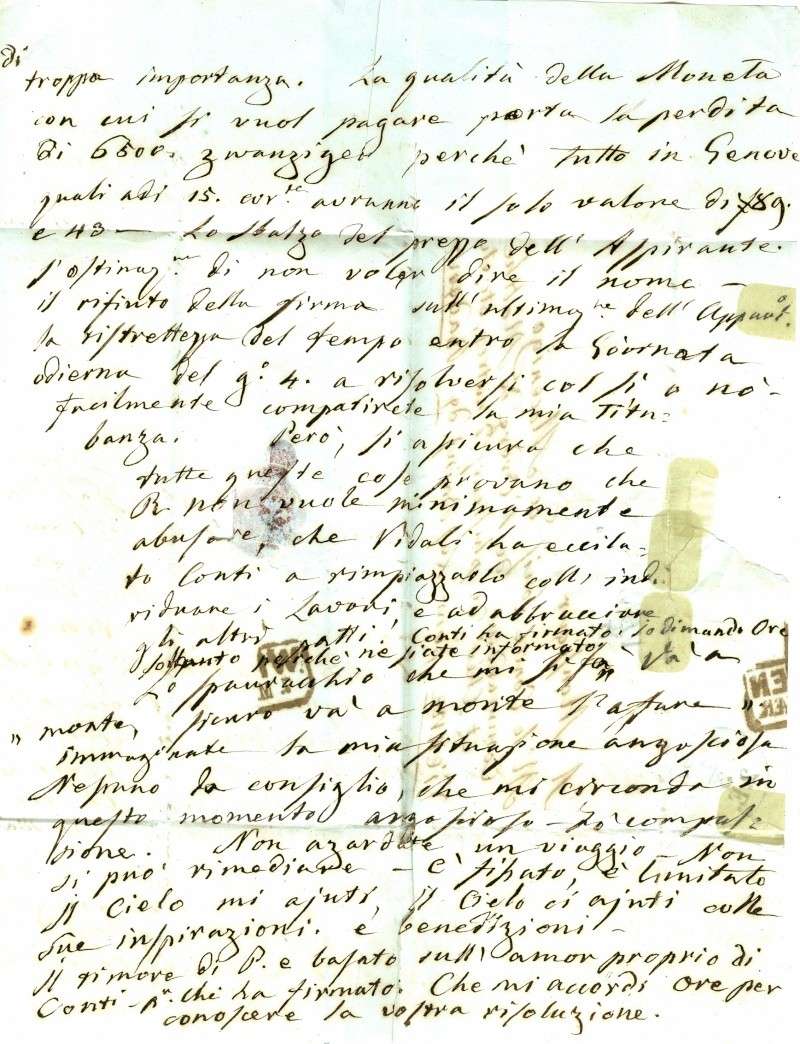 di
troppa importanza. La qualità della Moneta
con cui si vuol pagare porta la perdita
di 6500. zwanziger perchè tutto in Genove
quali adi 15. corr.te avranno il solo valore di 89.
e 43 — Lo sbalzo del prezzo dell' Aspirante.
l'ostinaz.ne di non voler dire il nome —
il rifiuto della firma sull' ultimaz.ne dell' Appunt.o
la ristrettezza del tempo entro la Giornata
odierna del g.o 4. a risolversi col sì o nò -
facilmente compatirete la mia Titu-
banza. Però, si assicura che
tutte queste cose provano che
P. non vuole minimamente
abusare, che Vidali ha eccita-
to Conti a rimpiazzarlo coll' indi
viduare i Lavori e ad abbracciare
gli altri patti. Conti ha firmato: io dimando Ore
soltanto perchè ne siate informato
Lo spauracchio che mi si fa và a
" monte, sicuro và a monte l'affare "
immaginate la mia situazione angosciosa
Nessuno da consiglio, che mi circonda in
questo momento angoscioso — La compul-
sione. Non azzardate un viaggio — Non
si può rimediare — è fissato, è limitato
Il Cielo mi ajuti, il Cielo ci ajuti colle
sue inspirazioni. e benedizioni —
Il timore di P. e basato sull' amor proprio di
Conti - che ha firmato. Che mi accordi Ore per
conoscere la vostra risoluzione.